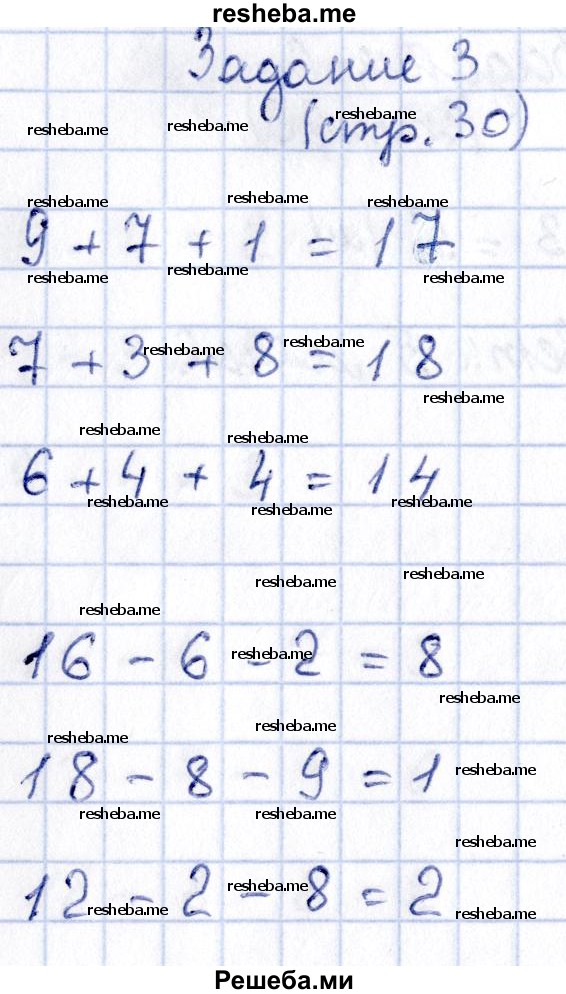 resheba.me
Задание 3
resheba.me resheba.me resheba.me
(стр. 30)
resheba.me resheba.me resheba.me
9 + 7 + 1 = 17
resheba.me resheba.me resheba.me
7 + 3 + 8 = 18
resheba.me resheba.me
resheba.me
resheba.me resheba.me
6 + 4 + 4 = 14
resheba.me resheba.me resheba.me
resheba.me resheba.me
resheba.me
16 - 6 - 2 = 8
resheba.me
resheba.me
resheba.me resheba.me
18 - 8 - 9 = 1
resheba.me
resheba.me resheba.me
resheba.me
12 - 2 - 8 = 2
resheba.me
resheba.me resheba.me
Решеба.ми